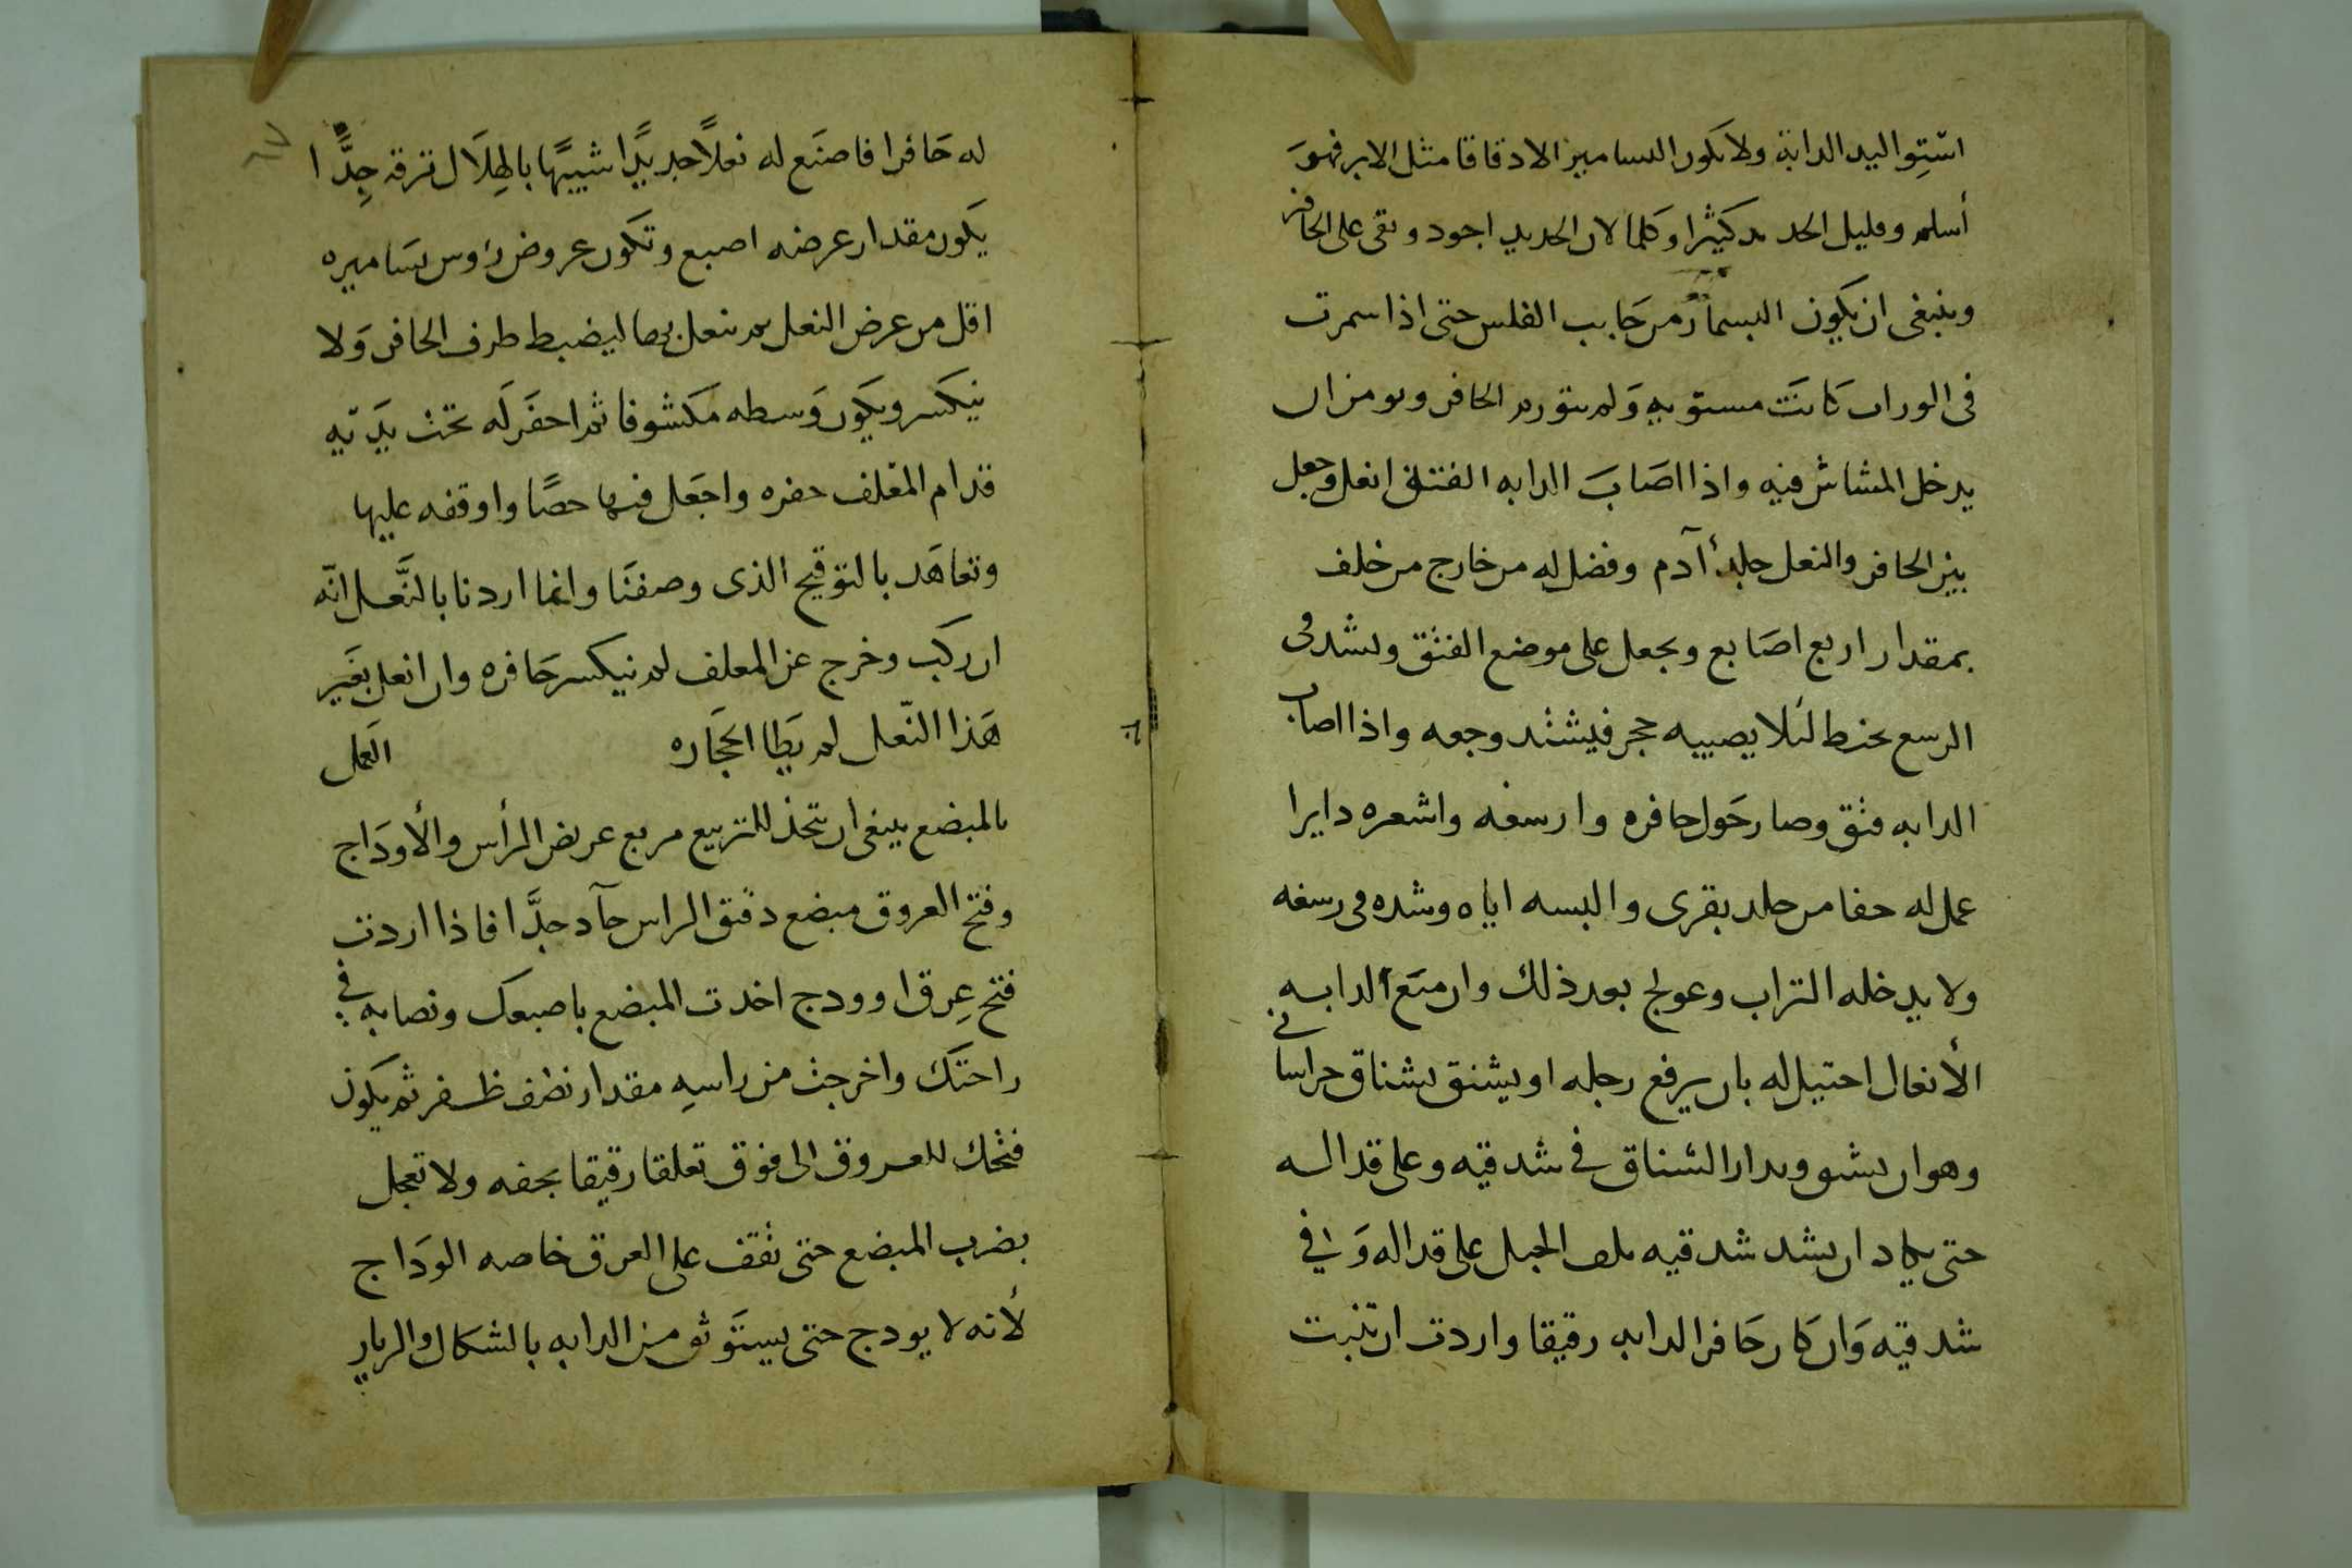 استوا ليد الدابة ولا تكون المسامير الا دقاقا مثل الابر فهو
أسلم وقليل الحديد كثيرا وكلما لان الحديد اجود وتقى على الحافر
وينبغى ان يكون المسمار من جانب الفلس حتى اذا سمرت
فى الدوران كانت مستويه ولم يتورم الحافر ويومن ان
يدخل المشاش فيه واذا اصاب الدابه الفتق انعل وجعل
بين الحافر والنعل جلد أآدم وفضل له من خارج من خلف
بمقدار اربع اصابع ويجعل على موضع الفتق ويشد فى
الرسع بخيط لئلا يصيبه حجر فيشتد وجعه واذا اصاب
الدابه فتق وصار حول حافره وارسغه واشعره دايرا
عمل له خفا من جلد بقرى والبسه اياه وشده فى رسغه
ولا يدخله التراب وعولج بعد ذلك وان منع الدابه
الأنعال احتيل له بان يرفع رجله او يشنق بشناق خراسانى
وهو ان يشق ويدار الشناق في شدقيه وعلى قداله
حتى يكاد ان يشد شدقيه بلف الحبل على قداله وفي
شدقيه وان كان حافر الدابه رقيقا واردت ان تنبت
له حافرا فاصنع له نعلاً حديداً شبيهًا بالهلال ترقه جدًّا
يكون مقدار عرضه اصبع وتكون عروض رؤس مساميره
اقل من عرض النعل ثم تنعل بها ليضبط طرف الحافر ولا
ينكسر ويكون وسطه مكشوفا ثم احفر له تحت يديه
قدام المعلف حفره واجعل فيها حصًا واوقفه عليها
وتعاهد بالتوقيح الذى وصفنا وانما اردنا بالنعل انه
ان ركب وخرج عن المعلف لم ينكسر حافره وان انعل بغير
هذا النعل لم يطا الحجاره العمل
بالمبضع ينبغى ان يتخذ للتربيع مربع عريض الرأس والأوداج
وفتح العروق مبضع دقيق الراس حآد جدًّا فاذا اردت
فتح عرق او ودج اخدت المبضع باصبعك ونصابه في
راحتك واخرجت من راسه مقدار نصف ظفر ثم يكون
فتحك للعروق الى فوق تعلقا رقيقا بخفه ولا تعجل
بضرب المبضع حتى تقف على العرق خاصه الوداج
لأنه لا يودج حتى يستوثق من الدابه بالشكال والزيار